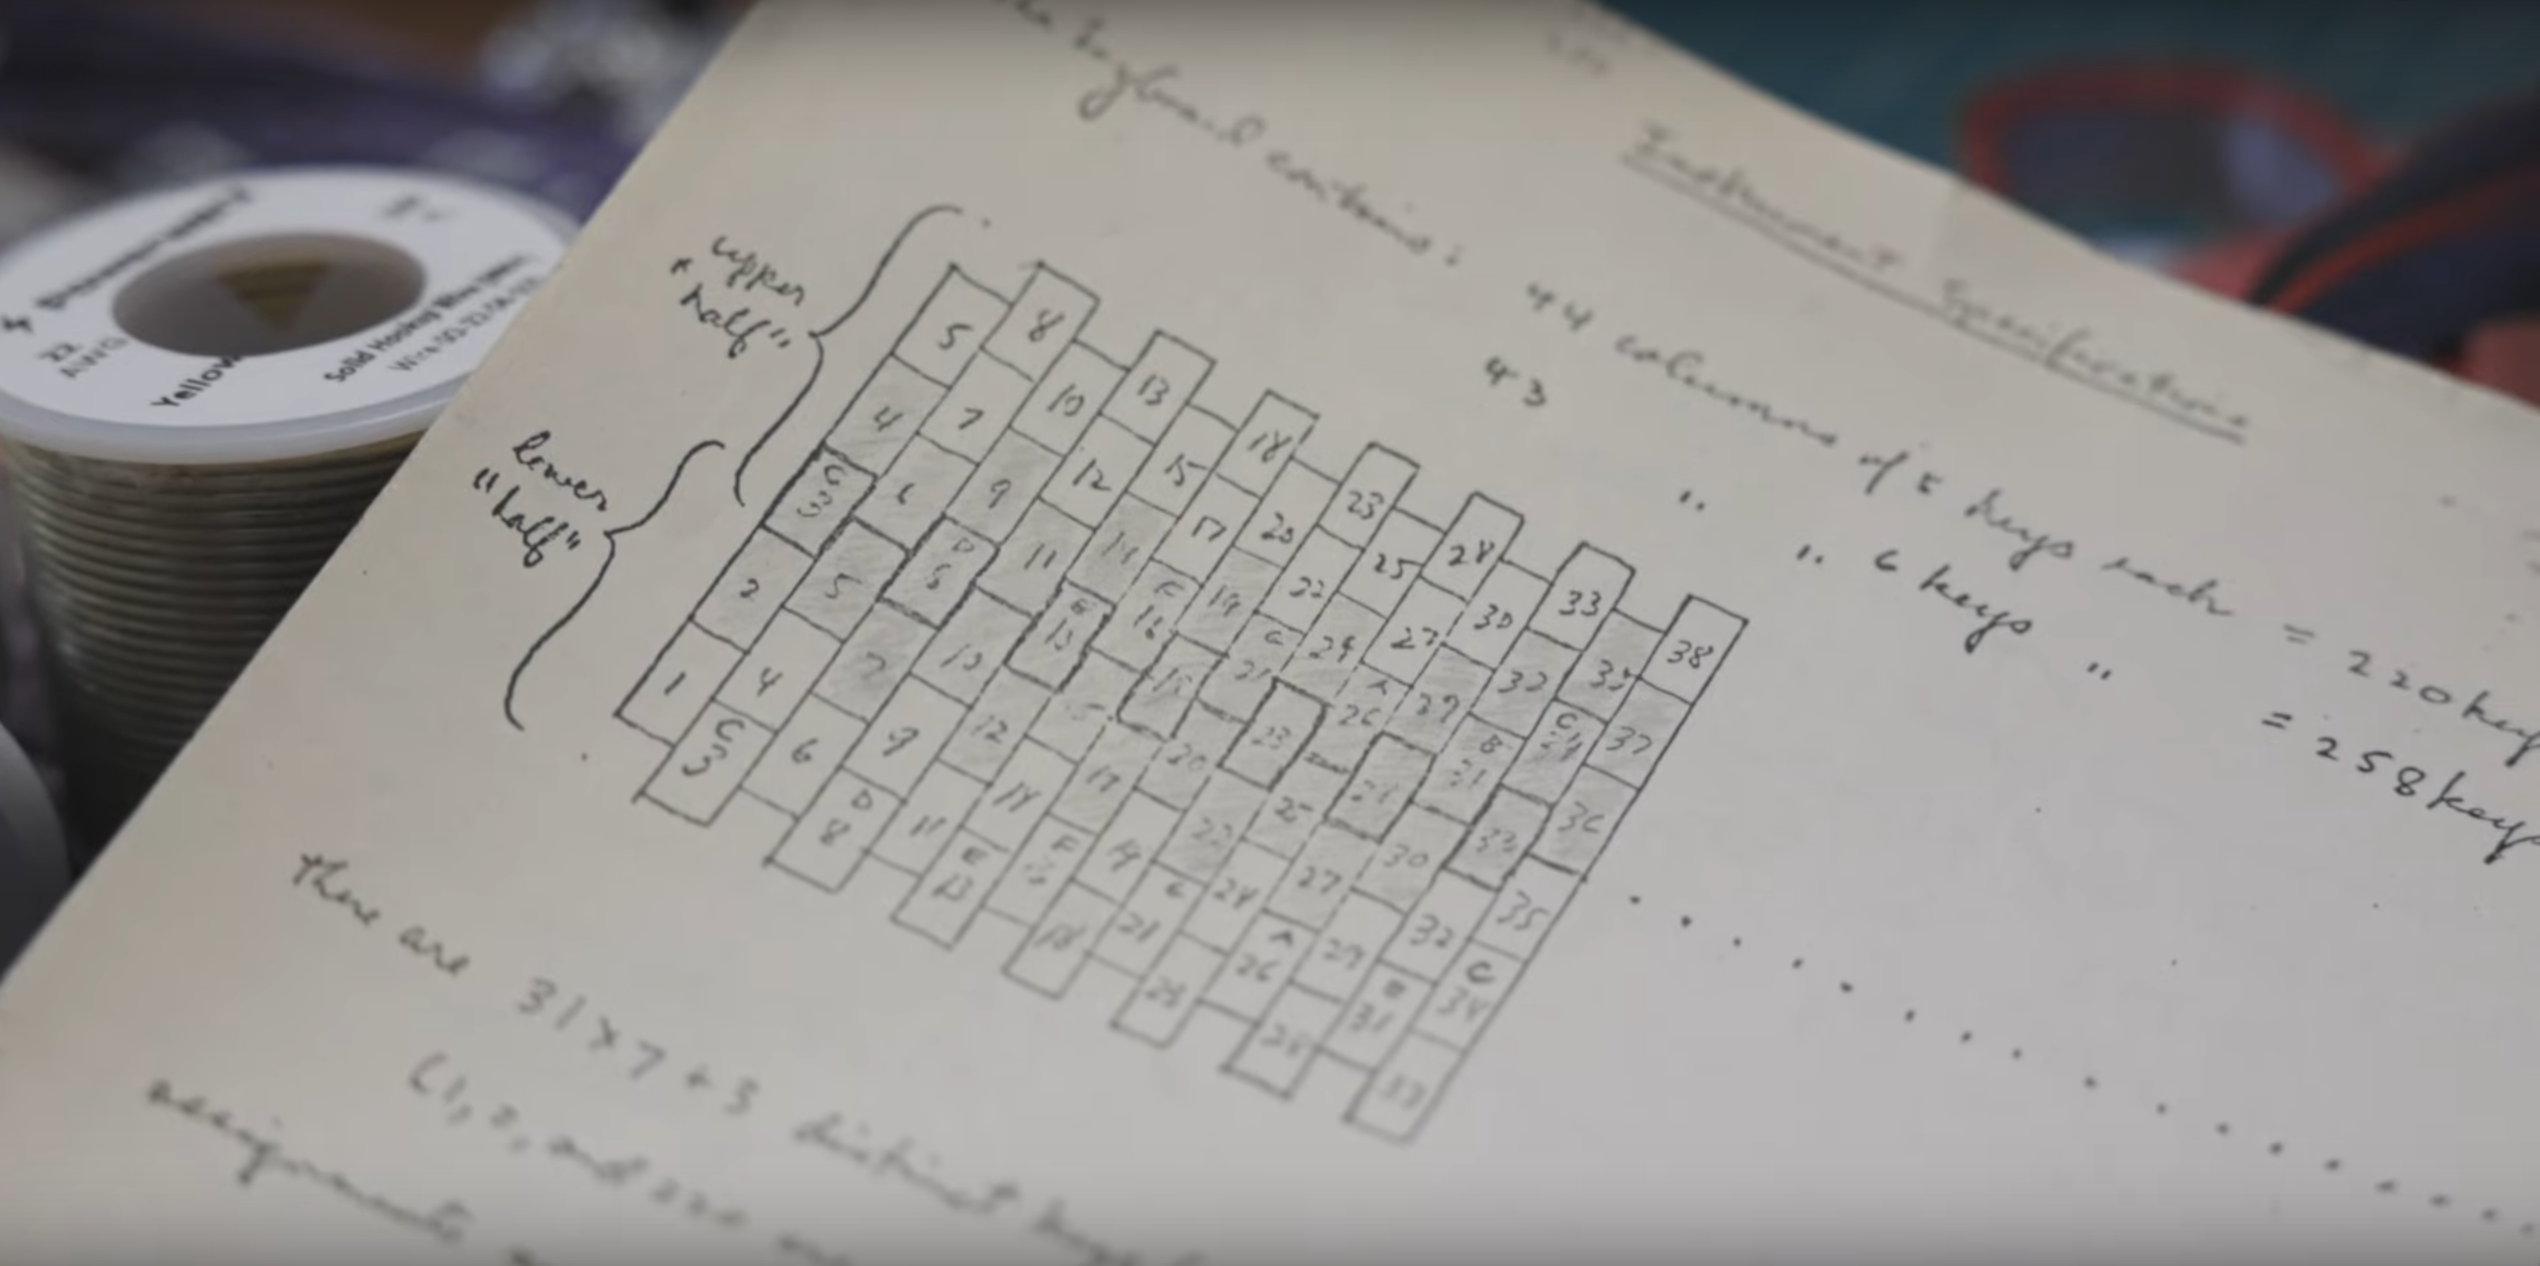 Instrument Specifications
keyboard contains:
44 columns of 5 keys each = 220 keys
43 " " 6 keys " = 258 keys
"upper
half"
"lower
half"
5 8 13 18 23 28 33 38
4 7 10 12 15 17 20 22 25 27 30 32 35 37
C 3 6 9 11 14 F 16 19 G 21 24 A 26 29 B 31 C 34 36
2 5 D 8 10 E 13 15 18 20 23 25 28 30 33 35
1 4 7 9 12 14 17 19 22 24 27 29 32 C 34
C 3 6 D 8 11 E 13 F 16 18 G 21 23 A 26 28 B 31 33
there are 31x7+3 distinct
(1, 2, and
assignments
Yellow
Solid Hookup Wire
22
AWG